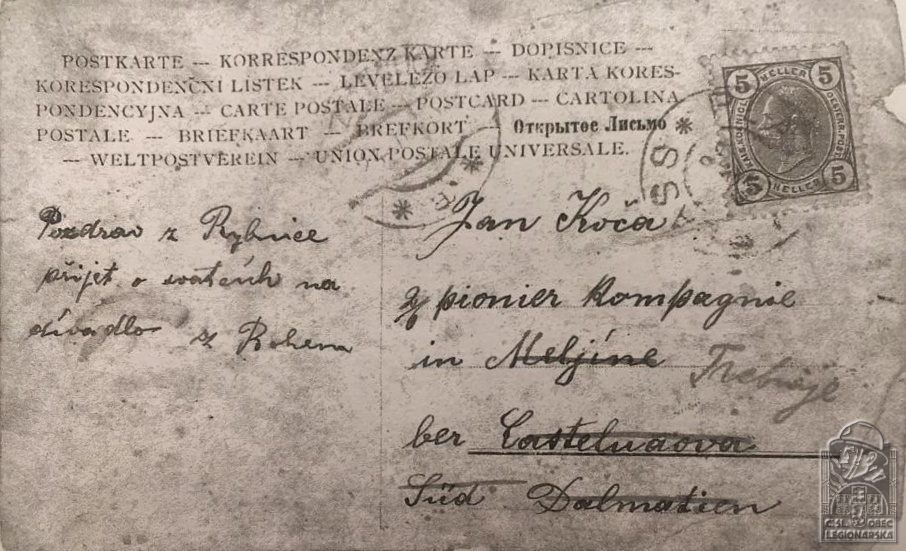 POSTKARTE — KORRESPONDENZ KARTE — DOPISNICE —
KORESPONDENČNI LISTEK — LEVELEZŐ LAP — KARTA KORES-
PONDENCYJNA — CARTE POSTALE — POSTCARD — CARTOLINA
POSTALE — BRIEFKAART — BREFKORT — Открытое Письмо
— WELTPOSTVEREIN — UNION POSTALE UNIVERSALE.
5 HELLER 5
5 HELLER 5
Pozdrav z Rybnice
přijet o svatcích na
dívadlo
Jan Koča
pionier Kompagnie
in Meljíne Trebinje
ber Castelnuova
Süd Dalmatien
ČSL. OBEC
LEGIONÁŘSKÁ